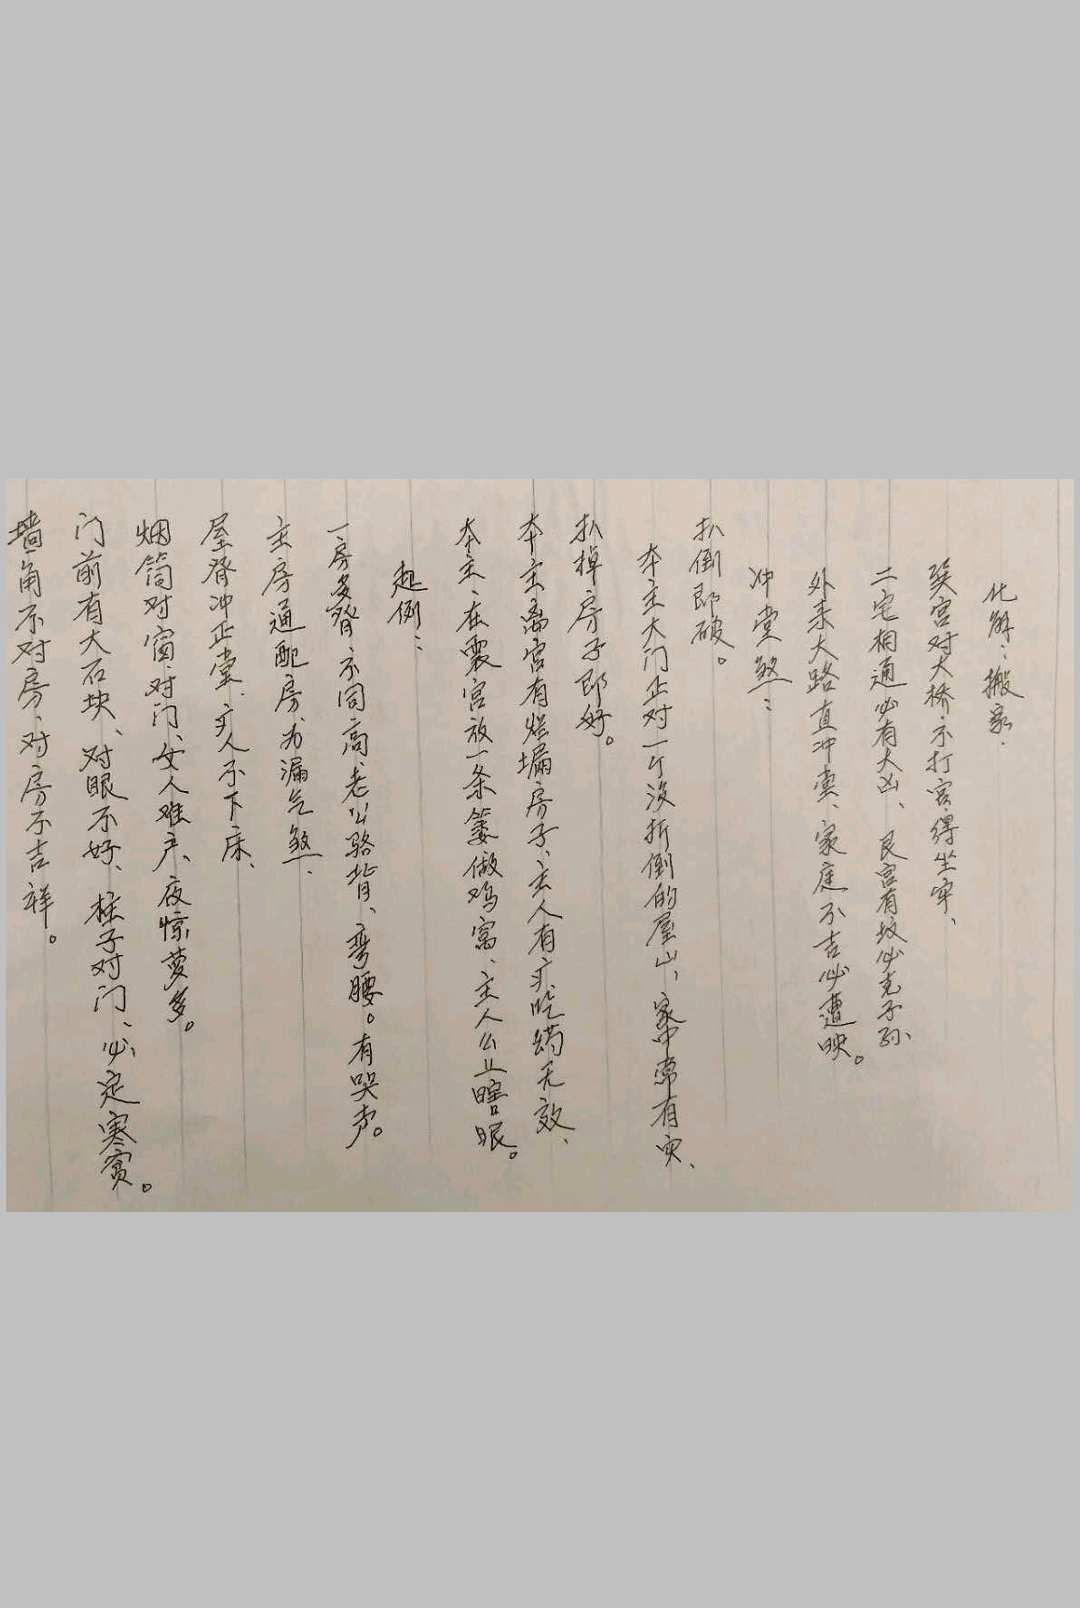 化解：搬家.
巽宫对大桥、不打官、得坐牢、
二宅相通必有大凶、艮宫有坟必克子孙、
外来大路直冲堂、家庭不吉必遭映。
冲堂煞：
本主大门正对一个没折倒的屋山、家中常有灾、
扒倒即破。
扒掉房子即好。
本主离宫有烂塌房子、主人有疒吃药无效、
本主、在震宫放一条篓做鸡窝、主人么丫瞎眼。
起例：
一房多脊不同高、老公骆背、弯腰。有哭声。
主房通配房为漏气煞.
屋脊冲正堂、疒人不下床、
烟筒对窗、对门、女人难产、夜惊萝多。
门前有大石块、对眼不好、柱子对门、必定寒贫。
墙角不对房、对房不吉祥。